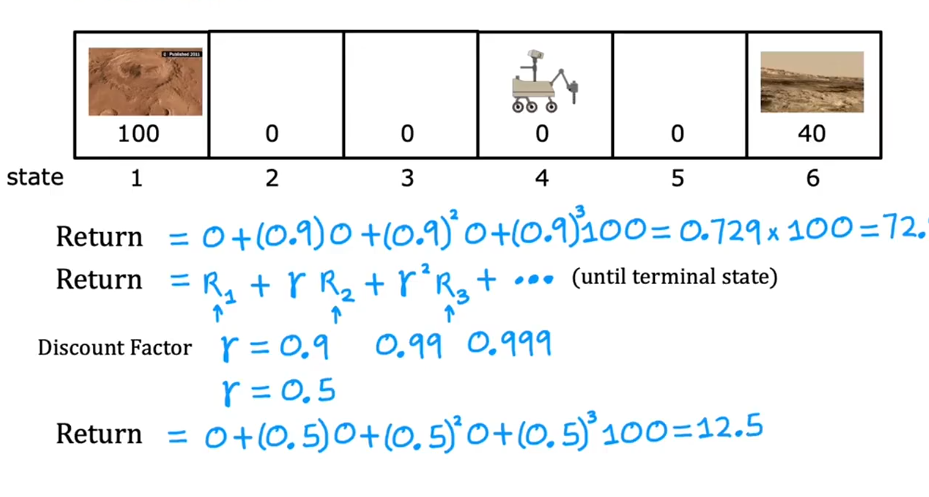 © Published 2021
100 0 0 0 0 40
state 1 2 3 4 5 6
Return = 0 + (0.9)0 + (0.9)²0 + (0.9)³100 = 0.729 × 100 = 72.
Return = R₁ + r R₂ + r² R₃ + ••• (until terminal state)
Discount Factor r = 0.9 0.99 0.999
r = 0.5
Return = 0 + (0.5)0 + (0.5)²0 + (0.5)³100 = 12.5